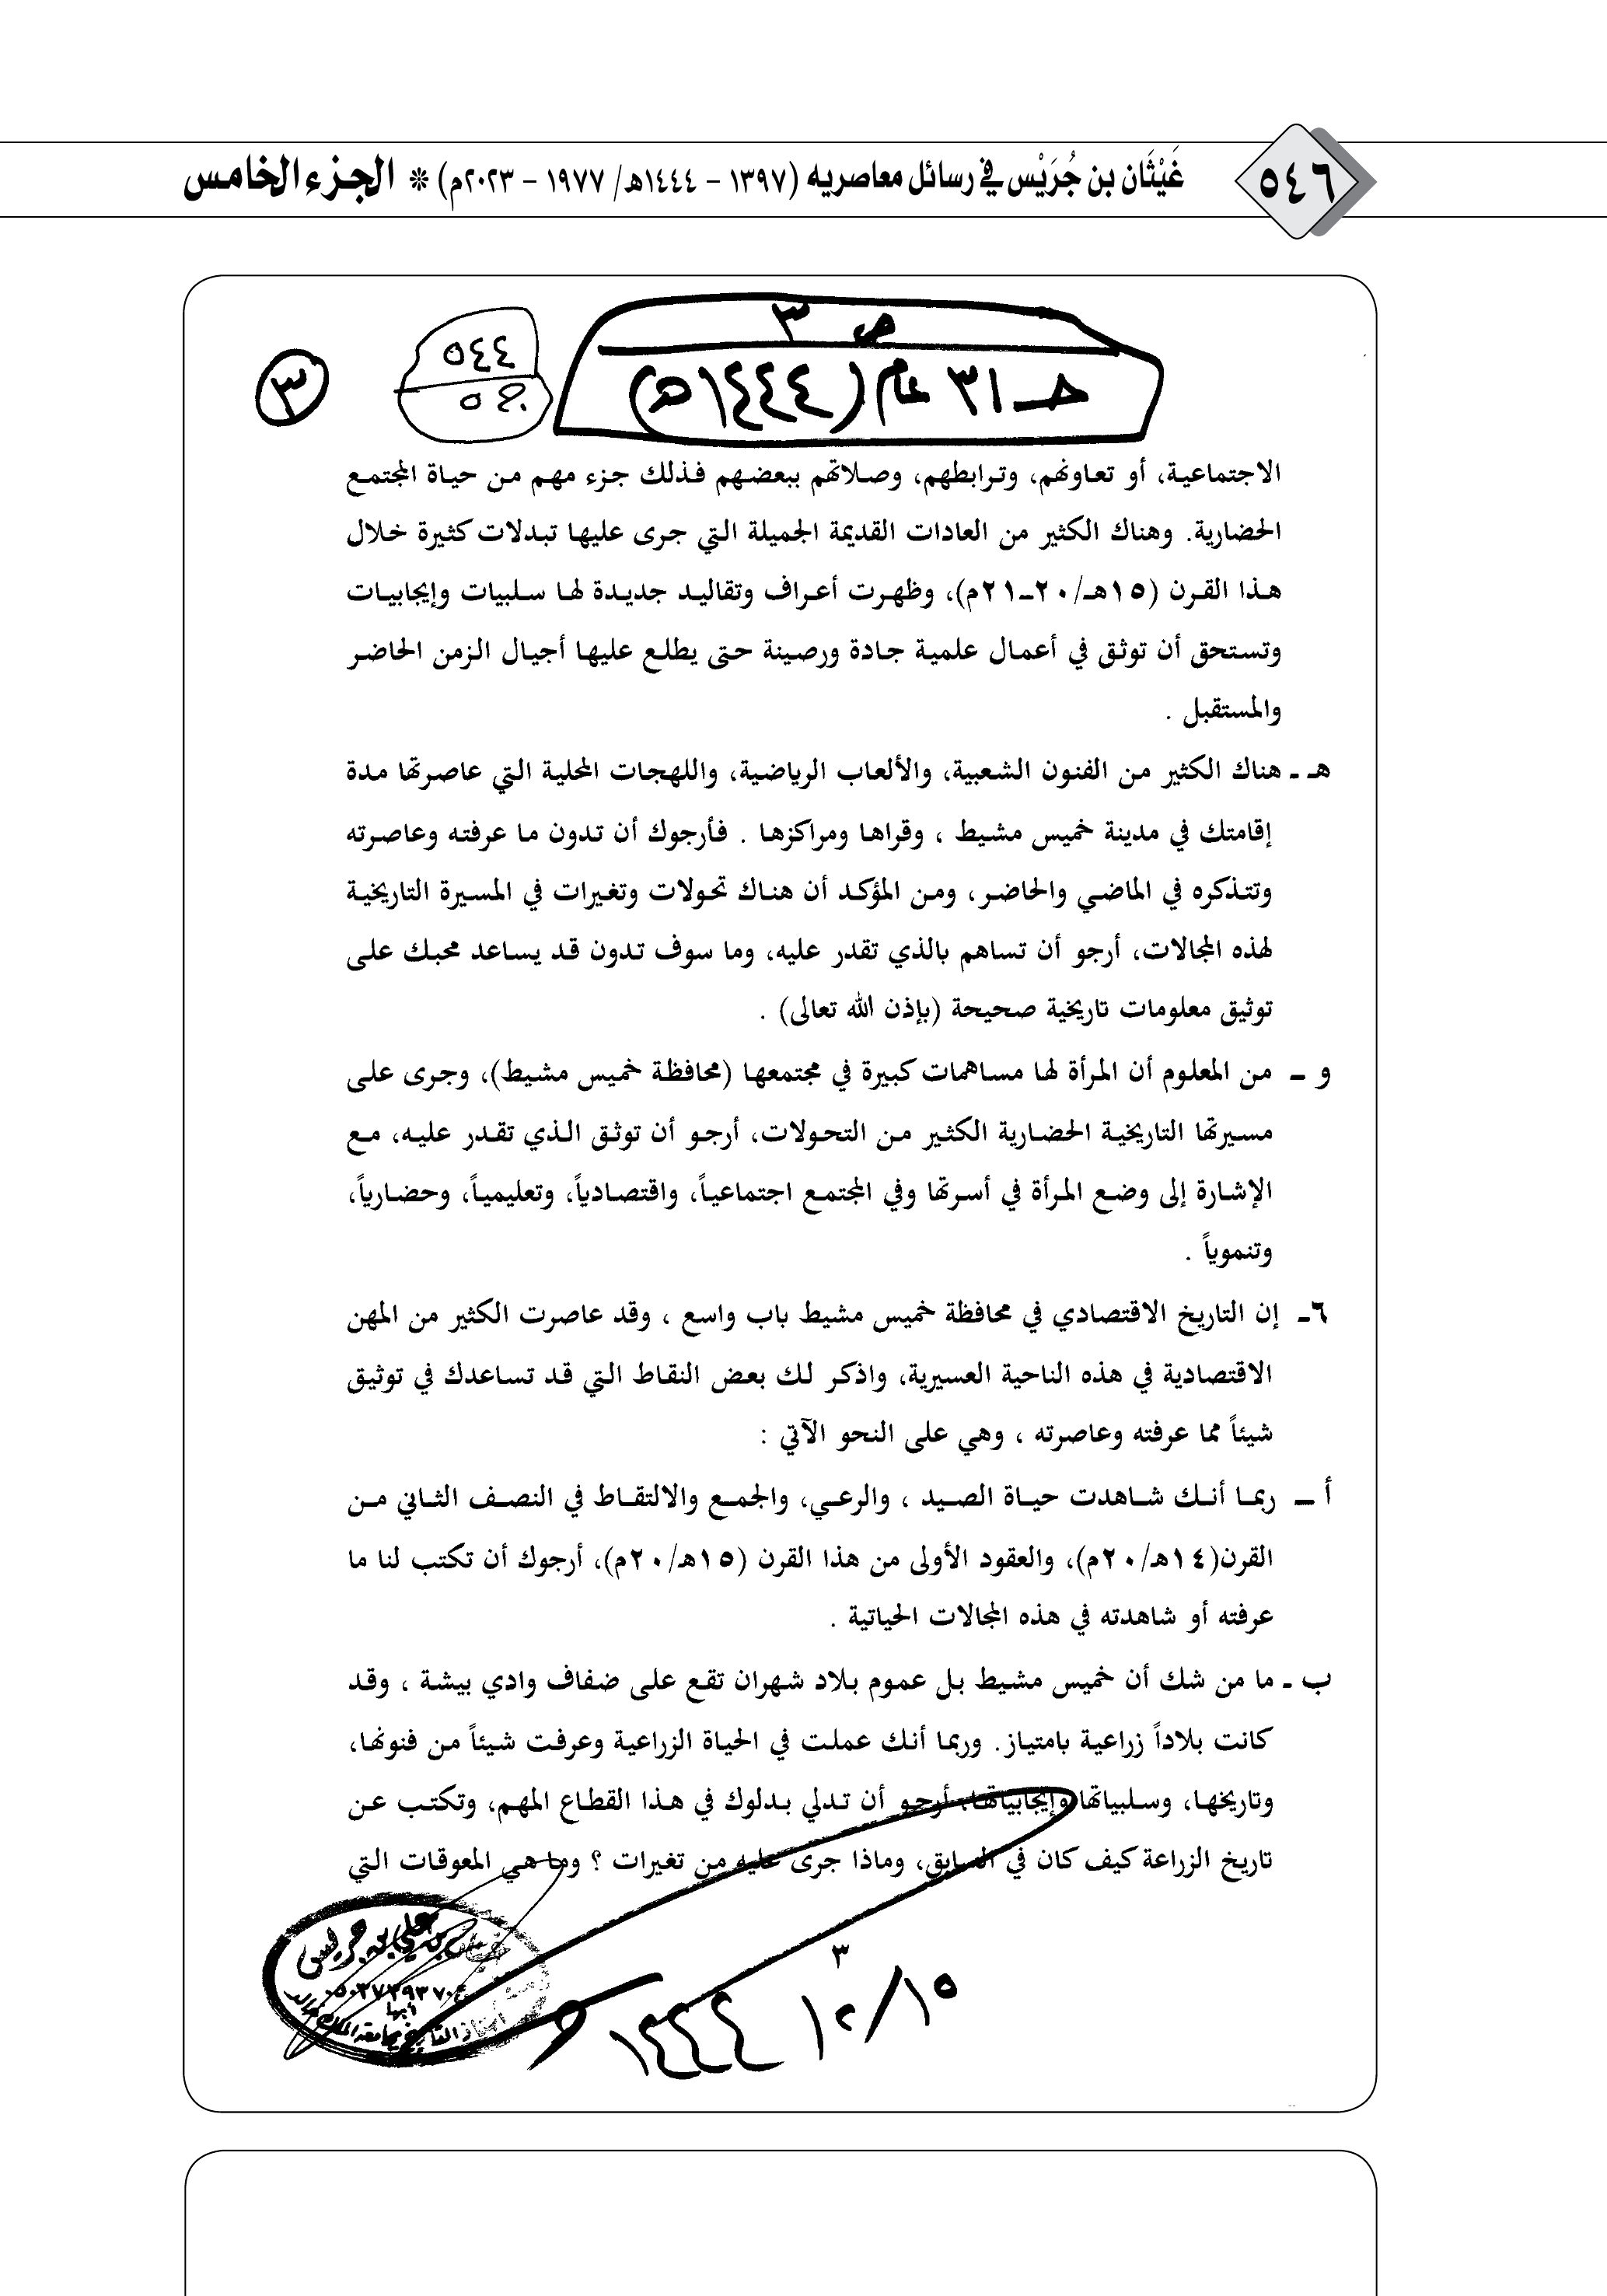 ٥٤٦
غَيْثَان بن جُرَيْس في رسائل معاصريه (١٣٩٧ - ١٤٤٤هـ/ ١٩٧٧ - ٢٠٢٣م) * الجزء الخامس
ص ٣
حـ ٣١ عام (١٤٤٤هـ)
٥٤٤
ج ٥
٣
الاجتماعية، أو تعاونهم، وترابطهم، وصلاتهم ببعضهم فذلك جزء مهم من حياة المجتمع
الحضارية. وهناك الكثير من العادات القديمة الجميلة التي جرى عليها تبدلات كثيرة خلال
هذا القرن (١٥هـ/٢٠ــ٢١م)، وظهرت أعراف وتقاليد جديدة لها سلبيات وإيجابيات
وتستحق أن توثق في أعمال علمية جادة ورصينة حتى يطلع عليها أجيال الزمن الحاضر
والمستقبل .
هـ ـ هناك الكثير من الفنون الشعبية، والألعاب الرياضية، واللهجات المحلية التي عاصرتها مدة
إقامتك في مدينة خميس مشيط ، وقراها ومراكزها . فأرجوك أن تدون ما عرفته وعاصرته
وتتذكره في الماضي والحاضر، ومن المؤكد أن هناك تحولات وتغيرات في المسيرة التاريخية
لهذه المجالات، أرجو أن تساهم بالذي تقدر عليه، وما سوف تدون قد يساعد محبك على
توثيق معلومات تاريخية صحيحة (بإذن الله تعالى) .
و ــ من المعلوم أن المرأة لها مساهمات كبيرة في مجتمعها (محافظة خميس مشيط)، وجرى على
مسيرتها التاريخية الحضارية الكثير من التحولات، أرجو أن توثق الذي تقدر عليه، مع
الإشارة إلى وضع المرأة في أسرتها وفي المجتمع اجتماعياً، واقتصادياً، وتعليمياً، وحضارياً،
وتنموياً .
٦ــ إن التاريخ الاقتصادي في محافظة خميس مشيط باب واسع ، وقد عاصرت الكثير من المهن
الاقتصادية في هذه الناحية العسيرية، واذكر لك بعض النقاط التي قد تساعدك في توثيق
شيئاً مما عرفته وعاصرته ، وهي على النحو الآتي :
أ ــ ربما أنك شاهدت حياة الصيد ، والرعي، والجمع والالتقاط في النصف الثاني من
القرن(١٤هـ/٢٠م)، والعقود الأولى من هذا القرن (١٥هـ/٢٠م)، أرجوك أن تكتب لنا ما
عرفته أو شاهدته في هذه المجالات الحياتية .
ب ـ ما من شك أن خميس مشيط بل عموم بلاد شهران تقع على ضفاف وادي بيشة ، وقد
كانت بلاداً زراعية بامتياز. وربما أنك عملت في الحياة الزراعية وعرفت شيئاً من فنونها،
وتاريخها، وسلبياتها وإيجابياتها، أرجو أن تدلي بدلوك في هذا القطاع المهم، وتكتب عن
تاريخ الزراعة كيف كان في السابق، وماذا جرى عليه من تغيرات ؟ وما هي المعوقات التي
٣
١٥/١٠/١٤٤٤
بن علي بن جريس
أبها